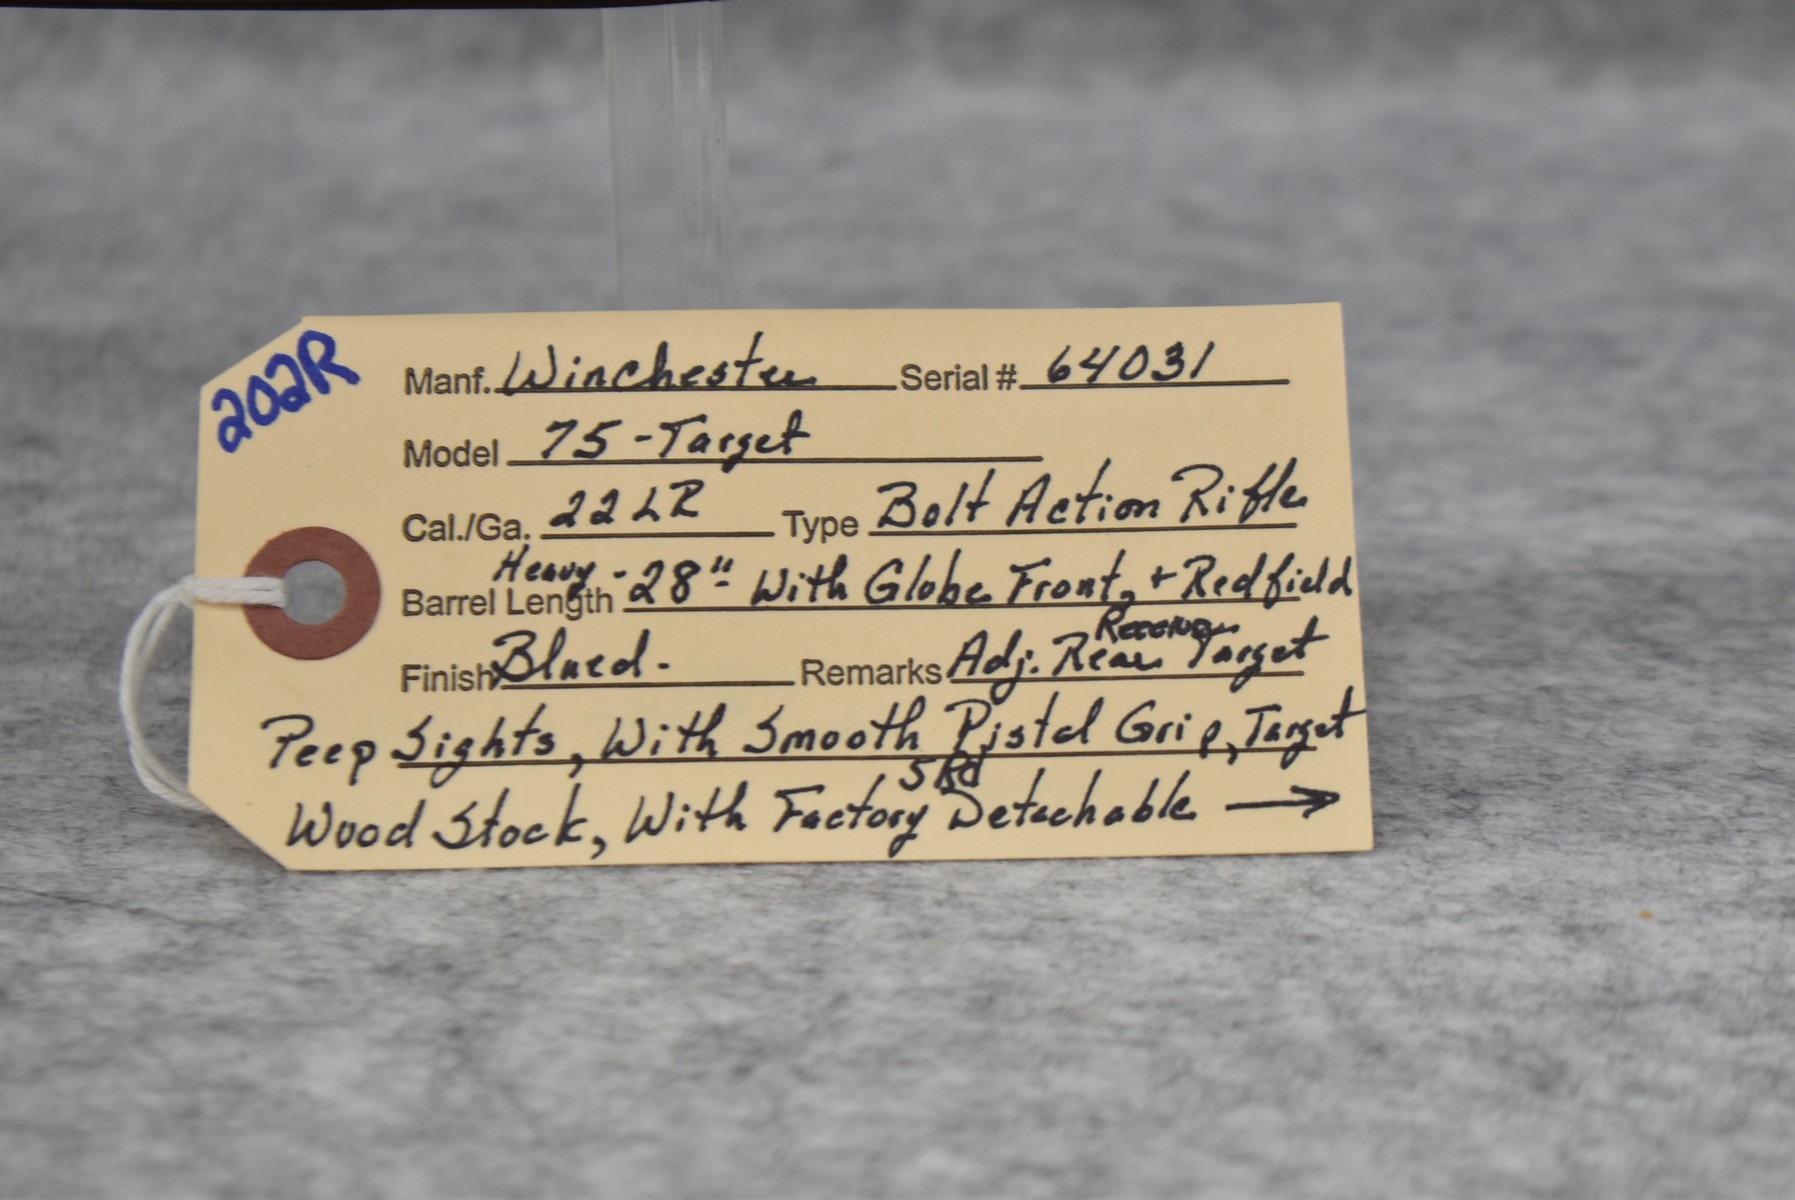 202R
Manf. Winchester Serial # 64031
Model 75-Target
Cal./Ga. 22 LR Type Bolt Action Rifle
Heavy -
Barrel Length 28" With Globe Front, + Redfield
Receiver
Finish Blued. Remarks Adj. Rear Target
Peep Sights, With Smooth Pistol Grip, Target
5 Rd
Wood Stock, With Factory Detachable →